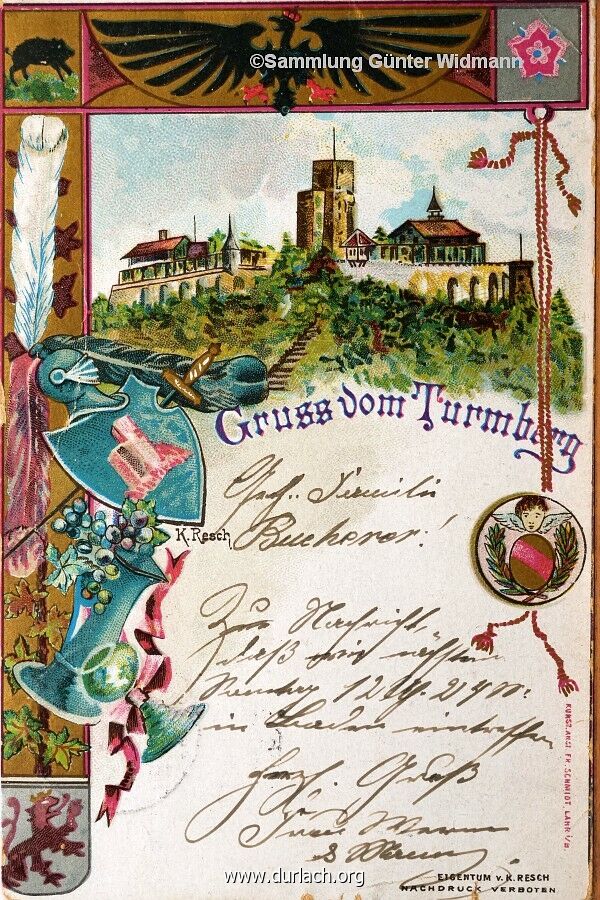 ©Sammlung Günter Widmann
Gruss vom Turmberg
K. Resch
Geh. Familie
Bucherer!
Zur Nachricht,
daß wir nächsten
Sonntag 12
in Baden eintreffen
Herzl. Gruß
Frau
KUNST.ANST. FR. SCHMIDT, LAHR i/B.
EIGENTUM v. K. RESCH
NACHDRUCK VERBOTEN
www.durlach.org